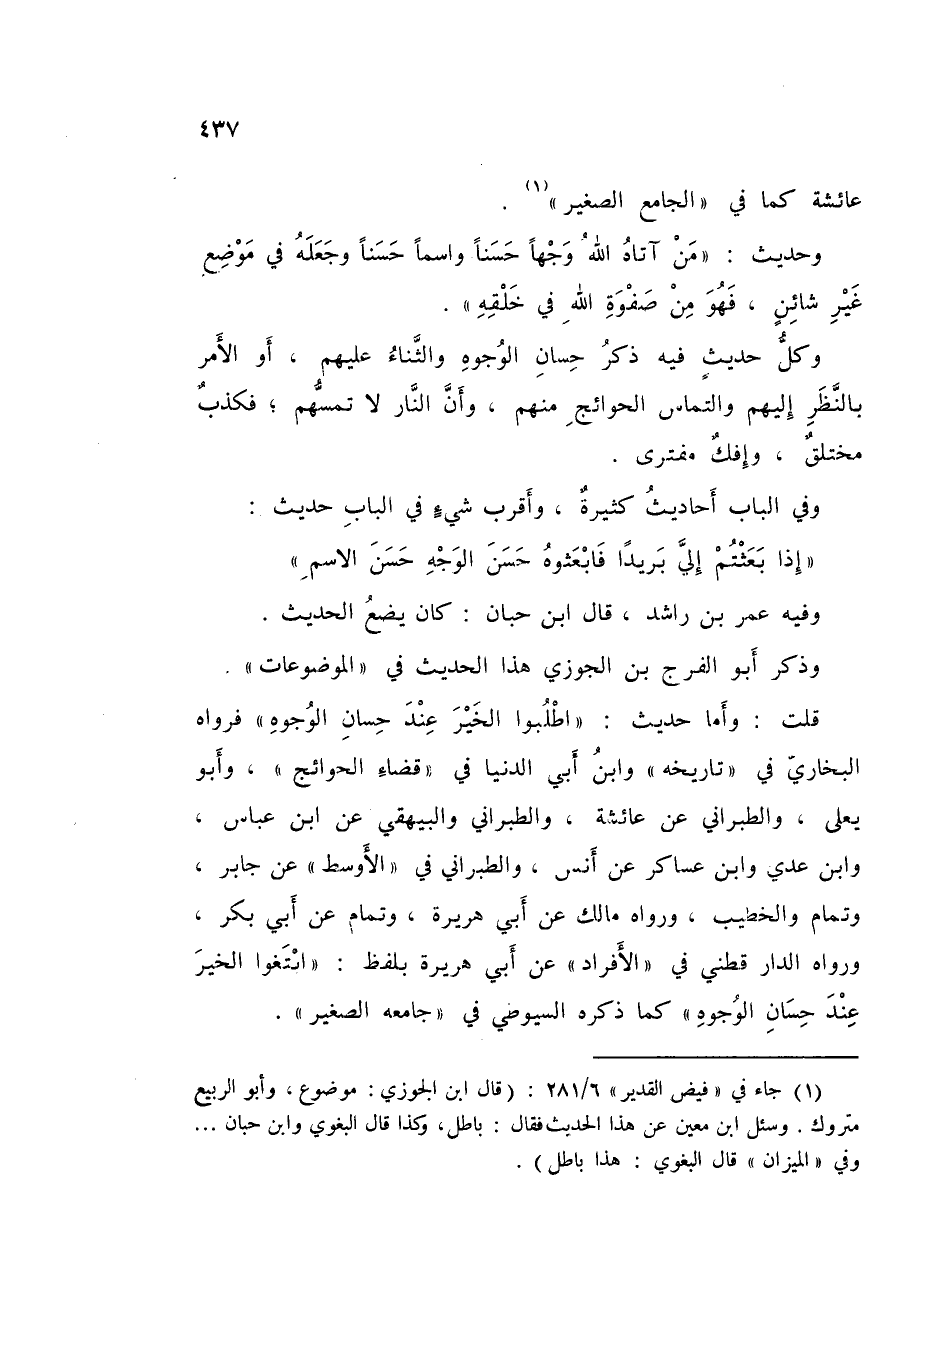 ٤٣٧
عائشة كما في «الجامع الصغير»(١) .
وحديث : «مَنْ آتاهُ اللهُ وَجْهاً حَسَناً واسماً حَسَناً وجَعَلَهُ في مَوْضِعٍ
غَيْرِ شائِنٍ ، فَهُوَ مِنْ صَفْوَةِ اللهِ في خَلْقِهِ» .
وكلُّ حديثٍ فيه ذكرُ حِسانِ الوُجوهِ والثَّناءُ عليهم ، أو الأَمر
بالنَّظَرِ إليهم والتماس الحوائجِ منهم ، وأَنَّ النَّار لا تمسُّهم ؛ فكذبٌ
مختلقٌ ، وإفكٌ مفترى .
وفي الباب أَحاديثُ كثيرةٌ ، وأَقرب شيءٍ في البابِ حديث :
«إذا بَعَثْتُمْ إليَّ بَريدًا فَابْعَثوهُ حَسَنَ الوَجْهِ حَسَنَ الاسمِ»
وفيه عمر بن راشد ، قال ابن حبان : كان يضعُ الحديث .
وذكر أَبو الفرج بن الجوزي هذا الحديث في «الموضوعات» .
قلت : وأَما حديث : «اطْلُبوا الخَيْرَ عِنْدَ حِسانِ الوُجوهِ» فرواه
البخاريّ في «تاريخه» وابنُ أَبي الدنيا في «قضاءِ الحوائج» ، وأَبو
يعلى ، والطبراني عن عائشة ، والطبراني والبيهقي عن ابن عباس ،
وابن عدي وابن عساكر عن أَنس ، والطبراني في «الأَوسط» عن جابر ،
وتمام والخطيب ، ورواه مالك عن أَبي هريرة ، وتمام عن أَبي بكر ،
ورواه الدار قطني في «الأَفراد» عن أَبي هريرة بلفظ : «ابْتَغوا الخيرَ
عِنْدَ حِسَانِ الوُجوهِ» كما ذكره السيوطي في «جامعه الصغير» .
(١) جاء في «فيض القدير» ٢٨١/٦ : (قال ابن الجوزي : موضوع ، وأبو الربيع
متروك . وسئل ابن معين عن هذا الحديث فقال : باطل، وكذا قال البغوي وابن حبان ...
وفي «الميزان» قال البغوي : هذا باطل) .